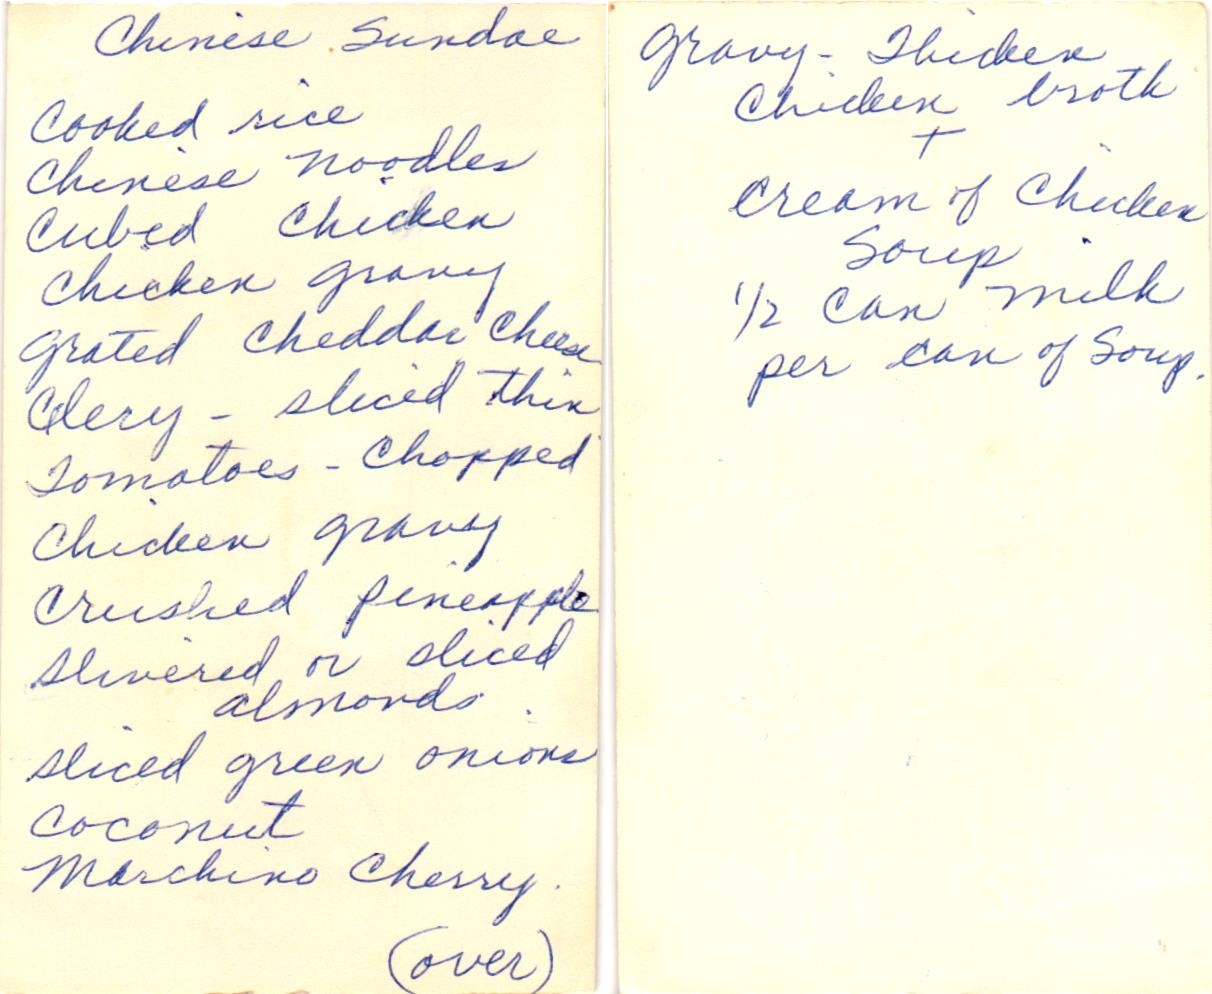 Chinese Sundae
Cooked rice
Chinese Noodles
Cubed Chicken
Chicken gravy
Grated Cheddar Cheese
Celery - sliced thin
Tomatoes - Chopped
Chicken gravy
Crushed pineapple
Slivered or sliced
almonds.
sliced green onions
Coconut
Marchino Cherry.
(over)
Gravy - Thicken
Chicken broth
+
Cream of Chicken
Soup
1/2 can milk
per can of Soup.